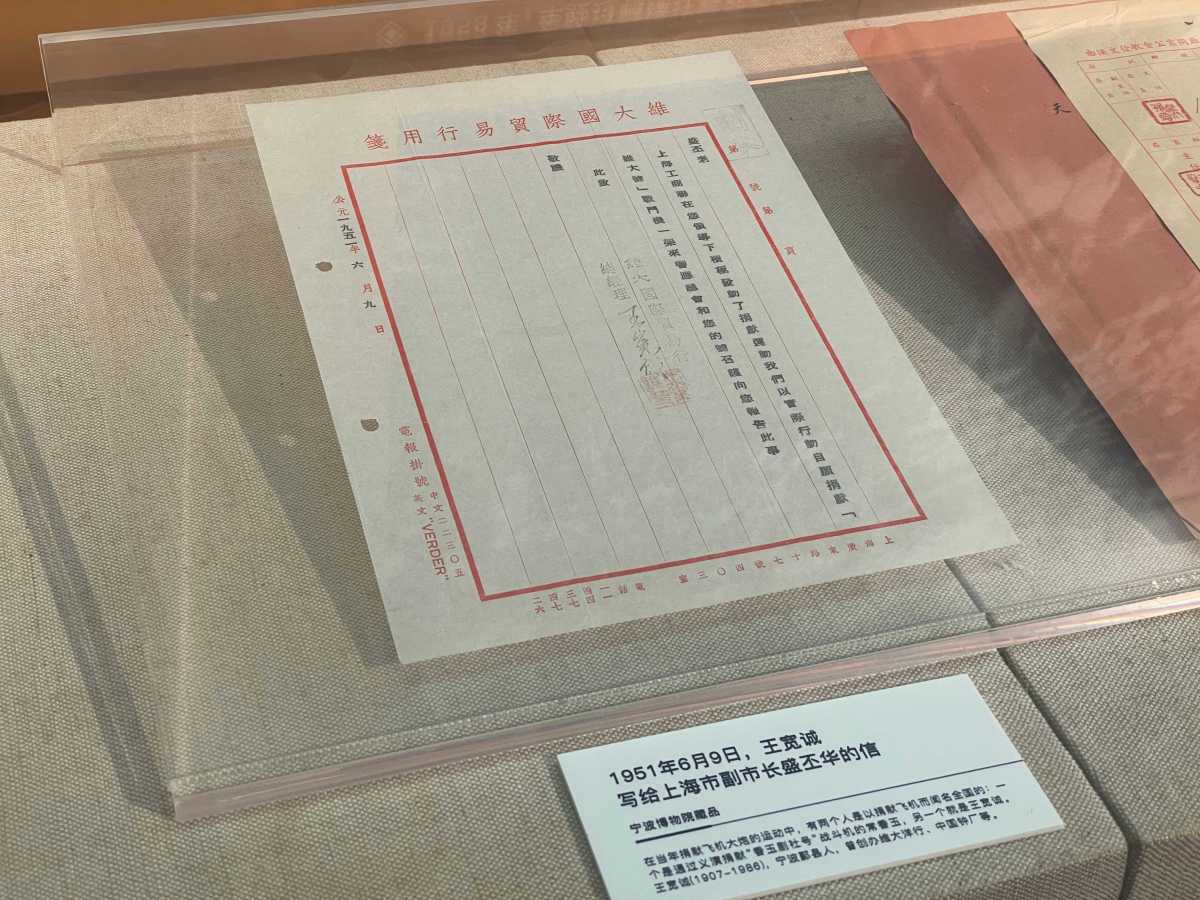 雄大國際貿易行用箋
第　號第　頁
盛丕老
上海工商聯在您領導下積極發動了捐獻運動我們以實際行動自願捐獻「
雄大號」戰鬥機一架來響應總會和您的號召謹向您報告此事
此致
敬禮
雄大國際貿易行
總經理
公元一九五一年六月九日
電報掛號
中文二二三〇五
英文"VERDER"
上海廣東路十七號四〇三室
電話
天
1951年6月9日，王宽诚
写给上海市副市长盛丕华的信
宁波博物院藏品
在当年捐献飞机大炮的运动中，有两个人是以捐献飞机而闻名全国的：一
个是通过义演捐献“香玉剧社号”战斗机的常香玉，另一个就是王宽诚。
王宽诚(1907-1986)，宁波鄞县人，曾创办维大洋行、中国钟厂等。